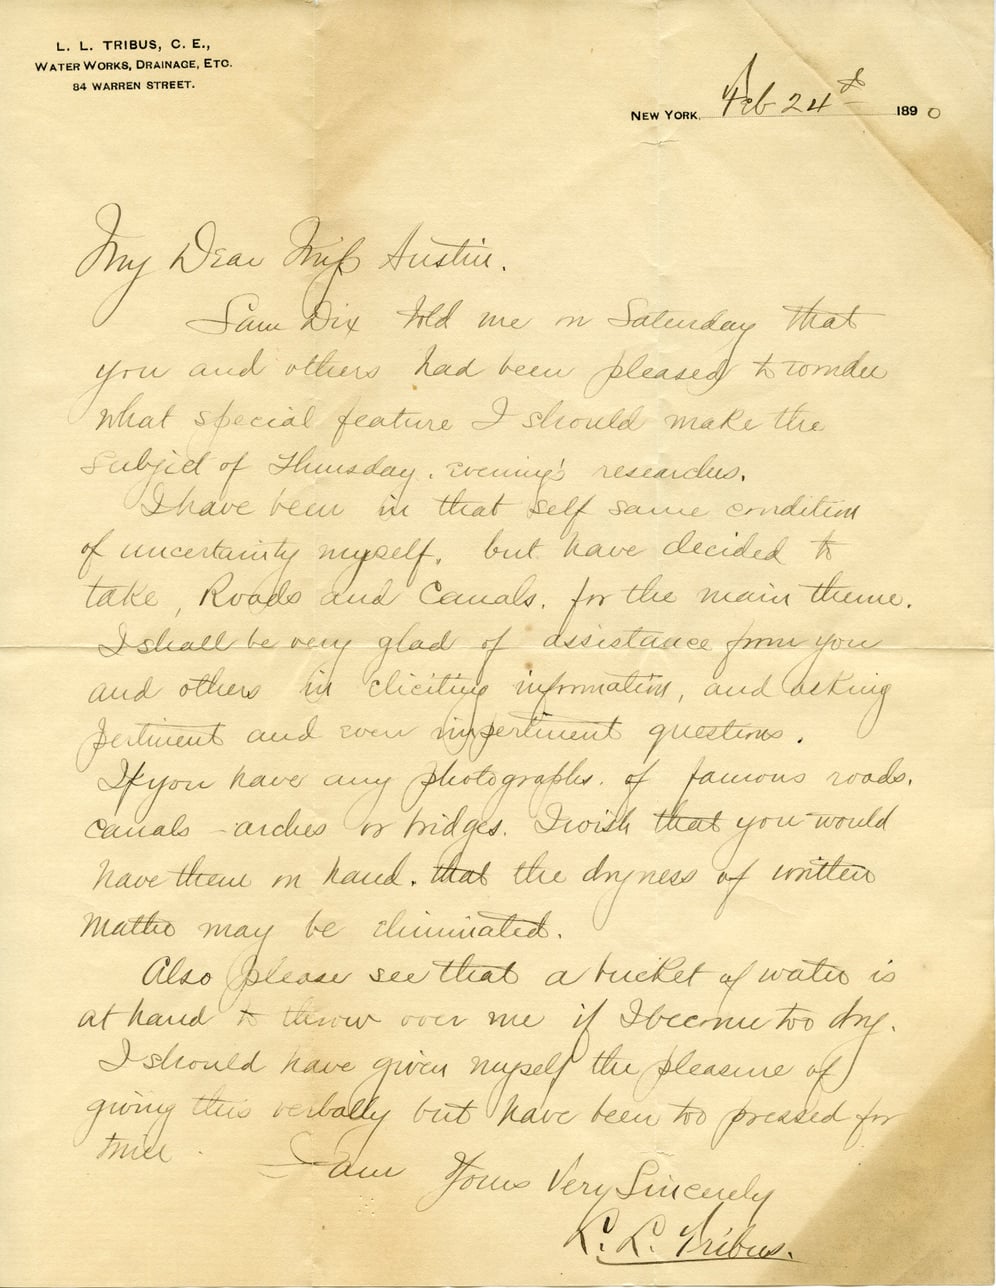 L. L. TRIBUS, C. E.,
WATER WORKS, DRAINAGE, ETC.
84 WARREN STREET.
NEW YORK, Feb 24th 1890
My Dear Miss Austin.
Sam Dix told me on Saturday that
you and others had been pleased to wonder
what special feature I should make the
subject of Thursday. evening's researches.
I have been in that self same condition
of uncertainty myself, but have decided to
take, Roads and Canals. for the main theme.
I shall be very glad of assistance from you
and others in eliciting information, and asking
pertinent and even impertinent questions.
If you have any photographs. of famous roads.
canals - arches or bridges. I wish that you would
have them on hand. that the dryness of written
matter may be eliminated.
Also please see that a bucket of water is
at hand to throw over me if I become too dry.
I should have given myself the pleasure of
giving this verbally but have been too pressed for
time.
I am Yours Very Sincerely
L. L. Tribus.